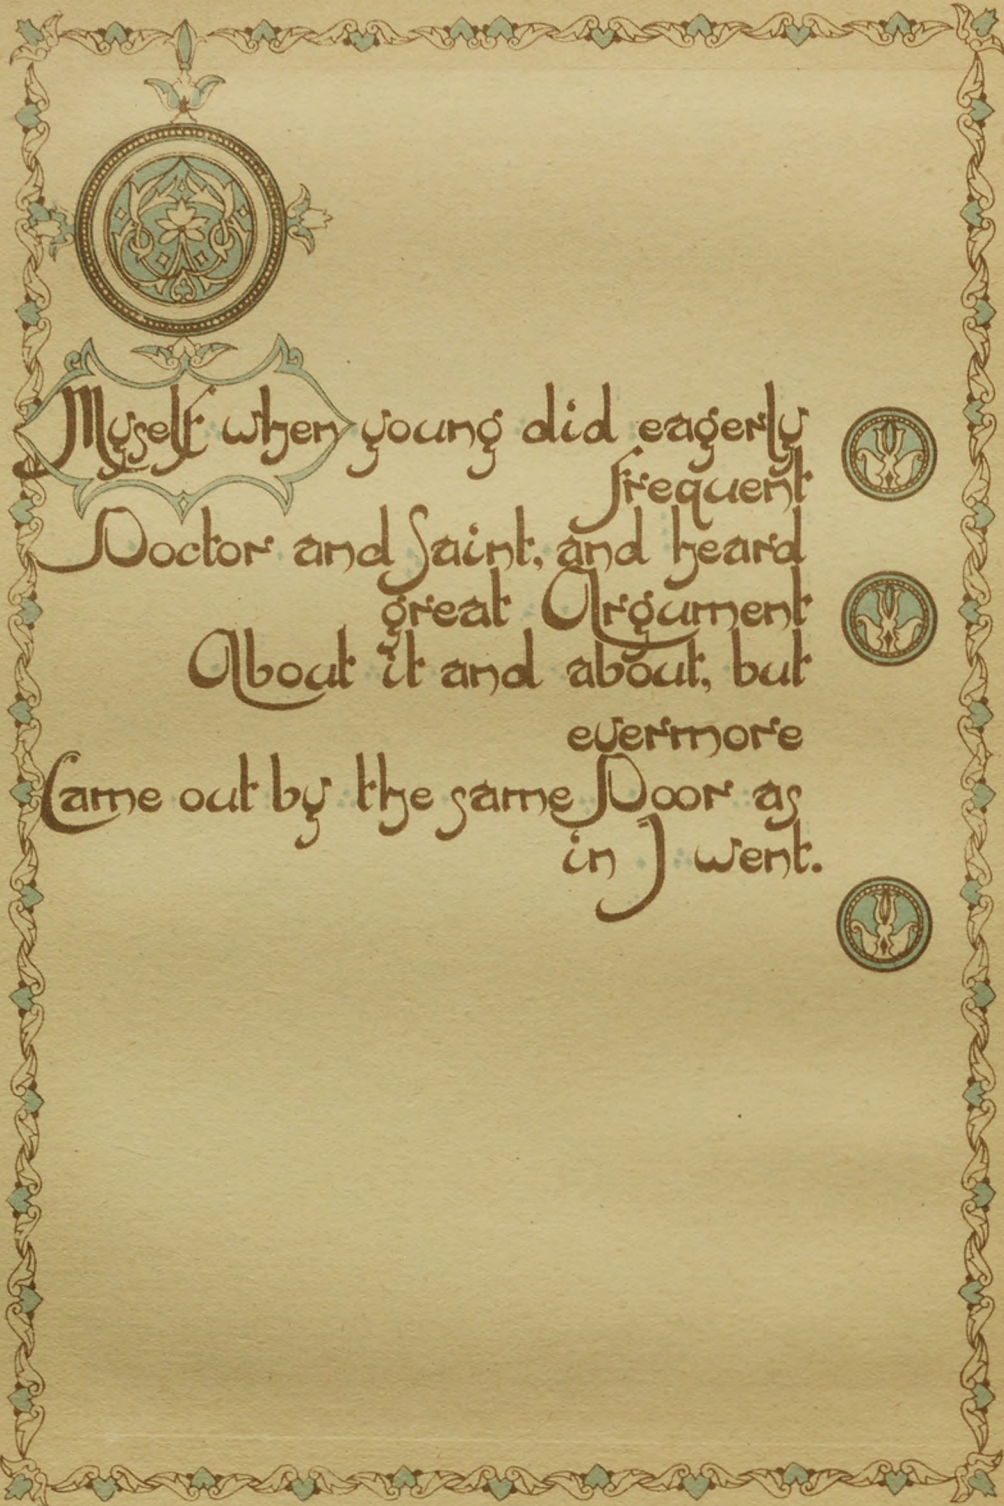 Myself when young did eagerly
frequent
Doctor and Saint, and heard
great Argument
About it and about, but
evermore
Came out by the same Door as
in I went.